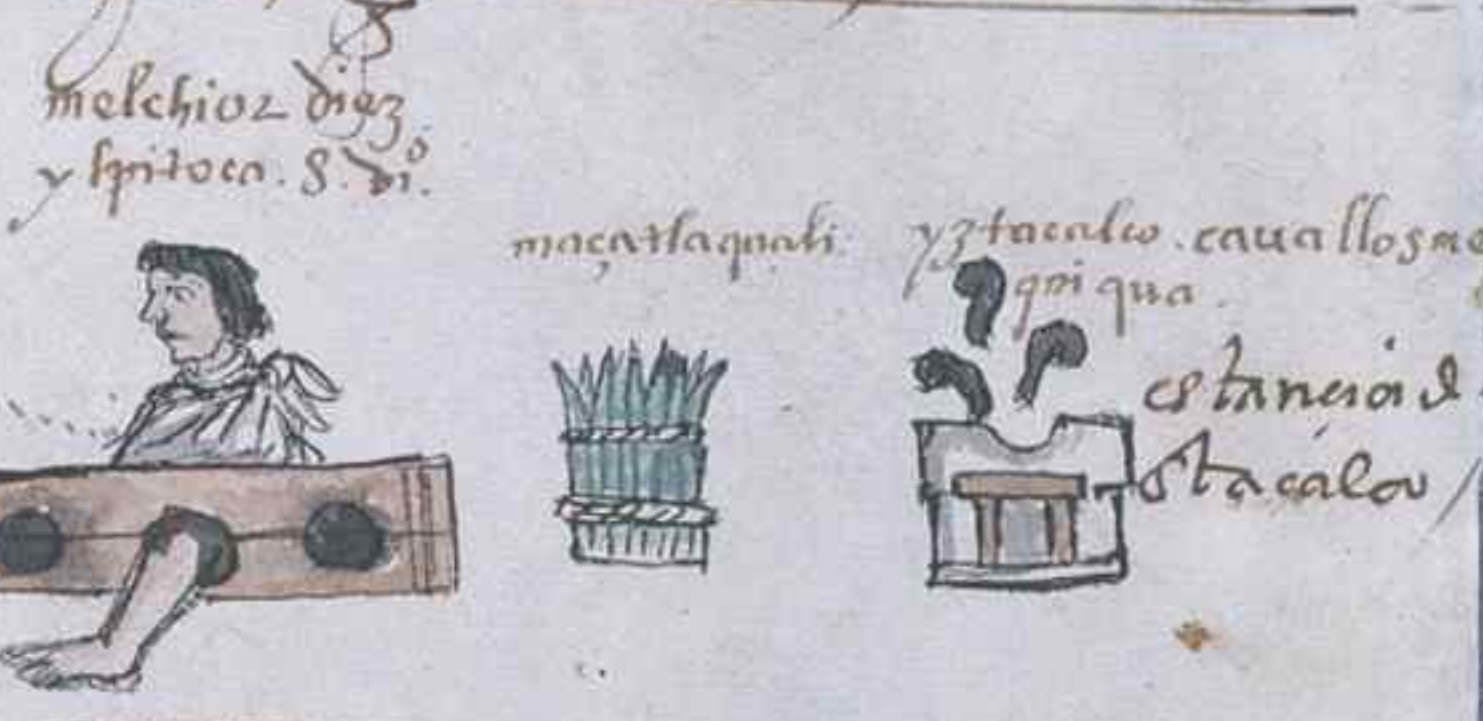 melchior diez
y spitoca. S. diº.
maçatlaquali
yztacalco. cauallosme
qui qua.
estançia d
stacalco